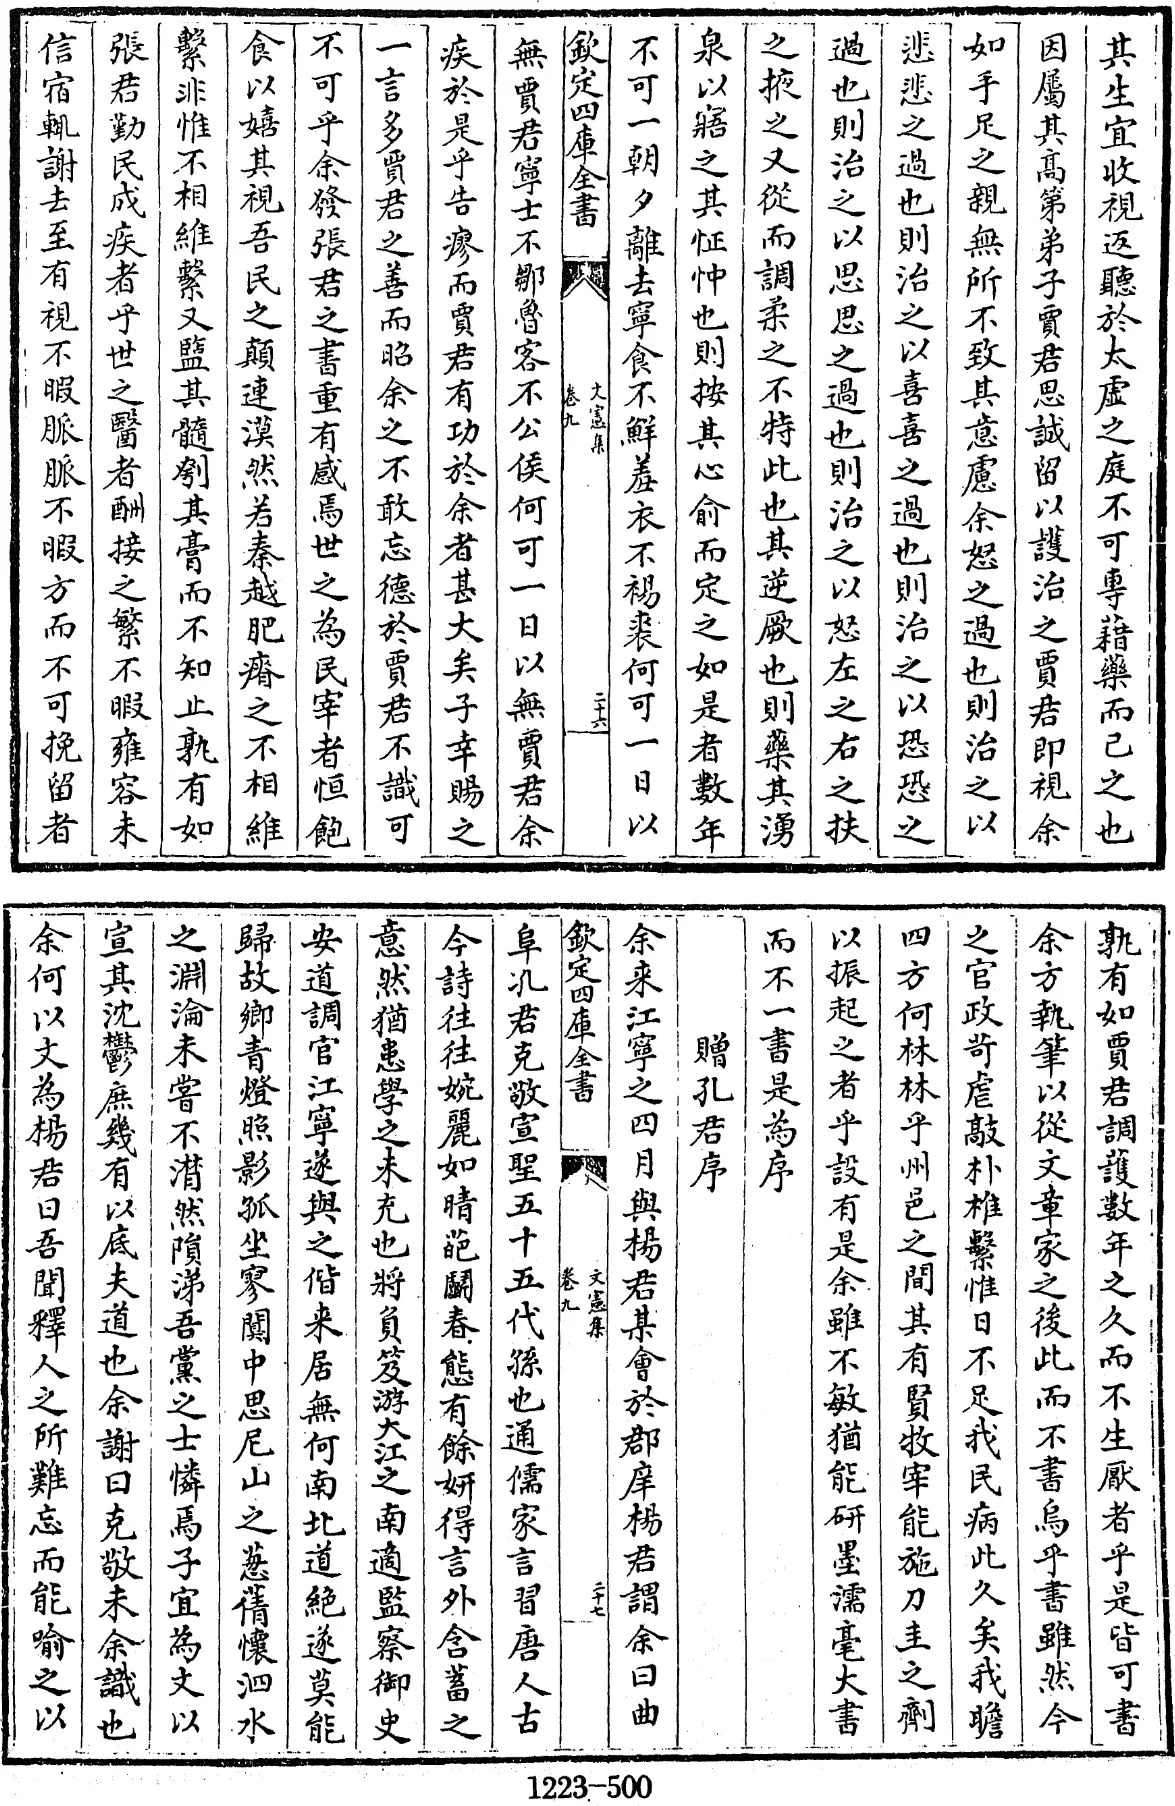 其生宜收視返聽於太虛之庭不可專藉藥而已之也
因屬其高第弟子賈君思誠留以護治之賈君即視余
如手足之親無所不致其意慮余怒之過也則治之以
悲悲之過也則治之以喜喜之過也則治之以恐恐之
過也則治之以思思之過也則治之以怒左之右之扶
之掖之又從而調柔之不特此也其逆厥也則藥其湧
泉以寤之其怔忡也則按其心俞而定之如是者數年
不可一朝夕離去寧食不鮮羞衣不裼裘何可一日以
欽定四庫全書
文憲集
卷九
二十六
無賈君寧士不鄒魯客不公侯何可一日以無賈君余
疾於是乎告瘳而賈君有功於余者甚大矣子幸賜之
一言多賈君之善而昭余之不敢忘德於賈君不識可
不可乎余發張君之書重有感焉世之為民宰者恒飽
食以嬉其視吾民之顛連漠然若秦越肥瘠之不相維
繫非惟不相維繫又盬其髓刳其膏而不知止孰有如
張君勤民成疾者乎世之醫者酬接之繁不暇雍容未
信宿輒謝去至有視不暇脈脈不暇方而不可挽留者
孰有如賈君調護數年之久而不生厭者乎是皆可書
余方執筆以從文章家之後此而不書烏乎書雖然今
之官政苛虐敲朴椎繫惟日不足我民病此久矣我瞻
四方何林林乎州邑之間其有賢牧宰能施刀圭之劑
以振起之者乎設有是余雖不敏猶能研墨濡毫大書
而不一書是為序
贈孔君序
余來江寧之四月與楊君某會於郡庠楊君謂余曰曲
欽定四庫全書
文憲集
卷九
二十七
阜孔君克敬宣聖五十五代孫也通儒家言習唐人古
今詩往往婉麗如晴葩鬬春態有餘妍得言外含蓄之
意然猶患學之未充也將負笈游大江之南適監察御史
安道調官江寧遂與之偕來居無何南北道絕遂莫能
歸故鄉青燈照影孤坐寥闃中思尼山之葱蒨懷泗水
之淵淪未嘗不潸然隕涕吾黨之士憐焉子宜為文以
宣其沈鬱庶幾有以底夫道也余謝曰克敬未余識也
余何以文為楊君曰吾聞釋人之所難忘而能喻之以
1223-500